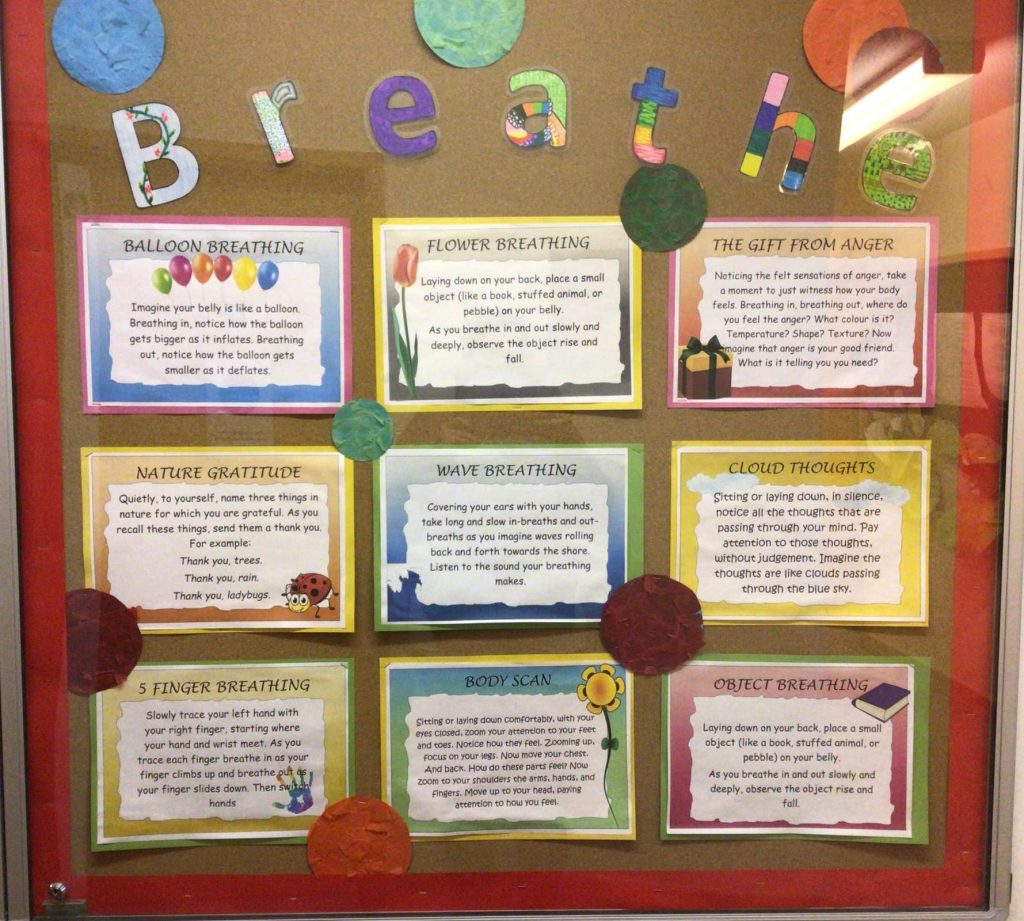 Breathe
BALLOON BREATHING
Imagine your belly is like a balloon.
Breathing in, notice how the balloon
gets bigger as it inflates. Breathing
out, notice how the balloon gets
smaller as it deflates.
FLOWER BREATHING
Laying down on your back, place a small
object (like a book, stuffed animal, or
pebble) on your belly.
As you breathe in and out slowly and
deeply, observe the object rise and
fall.
THE GIFT FROM ANGER
Noticing the felt sensations of anger, take
a moment to just witness how your body
feels. Breathing in, breathing out, where do
you feel the anger? What colour is it?
Temperature? Shape? Texture? Now
imagine that anger is your good friend.
What is it telling you you need?
NATURE GRATITUDE
Quietly, to yourself, name three things in
nature for which you are grateful. As you
recall these things, send them a thank you.
For example:
Thank you, trees.
Thank you, rain.
Thank you, ladybugs.
WAVE BREATHING
Covering your ears with your hands,
take long and slow in-breaths and out-
breaths as you imagine waves rolling
back and forth towards the shore.
Listen to the sound your breathing
makes.
CLOUD THOUGHTS
Sitting or laying down, in silence,
notice all the thoughts that are
passing through your mind. Pay
attention to those thoughts,
without judgement. Imagine the
thoughts are like clouds passing
through the blue sky.
5 FINGER BREATHING
Slowly trace your left hand with
your right finger, starting where
your hand and wrist meet. As you
trace each finger breathe in as your
finger climbs up and breathe out as
your finger slides down. Then switch
hands
BODY SCAN
Sitting or laying down comfortably, with your
eyes closed, zoom your attention to your feet
and toes. Notice how they feel. Zooming up,
focus on your legs. Now move your chest.
And back. How do these parts feel? Now
zoom to your shoulders the arms, hands, and
fingers. Move up to your head, paying
attention to how you feel.
OBJECT BREATHING
Laying down on your back, place a small
object (like a book, stuffed animal, or
pebble) on your belly.
As you breathe in and out slowly and
deeply, observe the object rise and
fall.